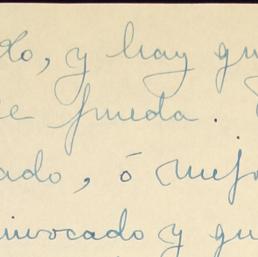 do, y hay qu
se pueda.
ado, ó mejo
invocado y qu